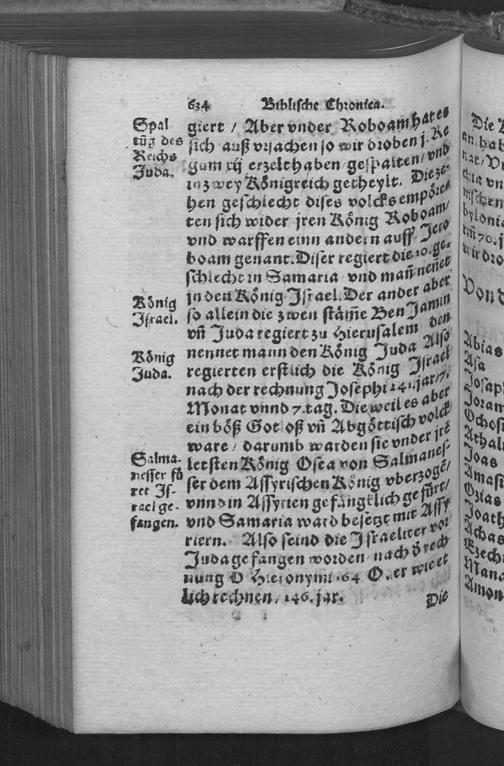 634 Biblische Chronica.
Spal
tūg des
Reichs
Juda.
giert / Aber vnder Roboam hat es
sich auß vrsachen so wir droben j. Re
gum xij erzelt haben gespalten / vnd
in zwey Königreich getheylt. Die ze-
hen geschlecht dises volcks empöre-
ten sich wider jren König Roboam /
vnd warffen einn andern auff Jero
boam genant. Diser regiert die 10. ge-
schlecht in Samaria vnd mañ nennet
jn den König Israel. Der ander aber
König
Israel.
so allein die zwen stäm̄e Ben Jamin
vñ Juda regiert zu Hierusalem den
nennet mann den König Juda Also
König
Juda.
regierten erstlich die König Israel
nach der rechnung Josephi 241. jar / 7.
Monat vnnd 7. tag. Die weil es aber
ein böß Gotloß vñ Abgöttisch volck
ware / darumb warden sie vnder jrē
Salma-
nesser fü
ret Is-
rael ge-
fangen.
letsten König Osea von Salmanes-
ser dem Assyrischen König vberzogē /
vnnd in Assyrien gefängklich gefürt /
vnd Samaria ward besetzt mit Assy
riern. Also seind die Israeliter vor
Juda gefangen worden nach d̄ rech
nung D Hieronymi 164 O.er wie et
lich rechnen / 146. jar.
Die
Die
an
Von d
Abias
Asa
Josap
Joram
Ochosi
Athal
Joas
Amasi
Ozias
Joath
Achas
Ezech
Mana
Amon